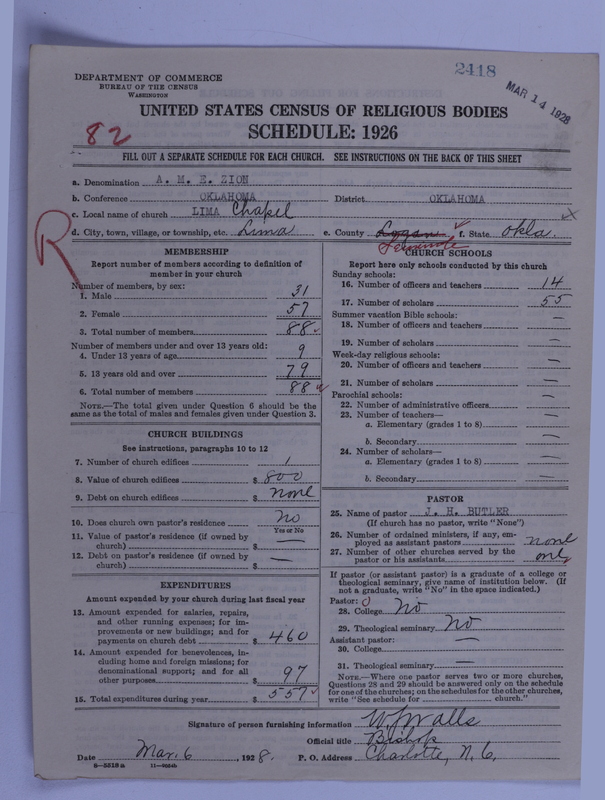 2418
MAR 14 1928
DEPARTMENT OF COMMERCE
BUREAU OF THE CENSUS
WASHINGTON
UNITED STATES CENSUS OF RELIGIOUS BODIES
SCHEDULE: 1926
82
FILL OUT A SEPARATE SCHEDULE FOR EACH CHURCH. SEE INSTRUCTIONS ON THE BACK OF THIS SHEET
a. Denomination A. M. E. ZION
b. Conference OKLAHOMA District OKLAHOMA
c. Local name of church LIMA Chapel
d. City, town, village, or township, etc. Lima e. County Logan f. State Okla.
Seminole
R
MEMBERSHIP
Report number of members according to definition of
member in your church
Number of members, by sex:
1. Male 31
2. Female 57
3. Total number of members 88
Number of members under and over 13 years old:
4. Under 13 years of age 9
5. 13 years old and over 79
6. Total number of members 88
NOTE.—The total given under Question 6 should be the
same as the total of males and females given under Question 3.
CHURCH BUILDINGS
See instructions, paragraphs 10 to 12
7. Number of church edifices 1
8. Value of church edifices $ 800
9. Debt on church edifices $ none
10. Does church own pastor's residence no
Yes or No
11. Value of pastor's residence (if owned by
church) $ —
12. Debt on pastor's residence (if owned by
church) $ —
EXPENDITURES
Amount expended by your church during last fiscal year
13. Amount expended for salaries, repairs,
and other running expenses; for im-
provements or new buildings; and for
payments on church debt $ 460
14. Amount expended for benevolences, in-
cluding home and foreign missions; for
denominational support; and for all
other purposes $ 97
15. Total expenditures during year $ 557
CHURCH SCHOOLS
Report here only schools conducted by this church
Sunday schools:
16. Number of officers and teachers 14
17. Number of scholars 55
Summer vacation Bible schools:
18. Number of officers and teachers —
19. Number of scholars —
Week-day religious schools:
20. Number of officers and teachers —
21. Number of scholars —
Parochial schools:
22. Number of administrative officers —
23. Number of teachers—
a. Elementary (grades 1 to 8) —
b. Secondary —
24. Number of scholars—
a. Elementary (grades 1 to 8) —
b. Secondary —
PASTOR
25. Name of pastor J. H. BUTLER
(If church has no pastor, write "None")
26. Number of ordained ministers, if any, em-
ployed as assistant pastors none
27. Number of other churches served by the
pastor or his assistants one
If pastor (or assistant pastor) is a graduate of a college or
theological seminary, give name of institution below. (If
not a graduate, write "No" in the space indicated.)
Pastor:
28. College No
29. Theological seminary No
Assistant pastor: —
30. College
31. Theological seminary —
NOTE.—Where one pastor serves two or more churches,
Questions 28 and 29 should be answered only on the schedule
for one of the churches; on the schedules for the other churches,
write "See schedule for church."
Signature of person furnishing information W J Walls
Official title Bishop
Date Mar. 6, 1928. P. O. Address Charlotte, N. C.
8—5810 a 11—9034b